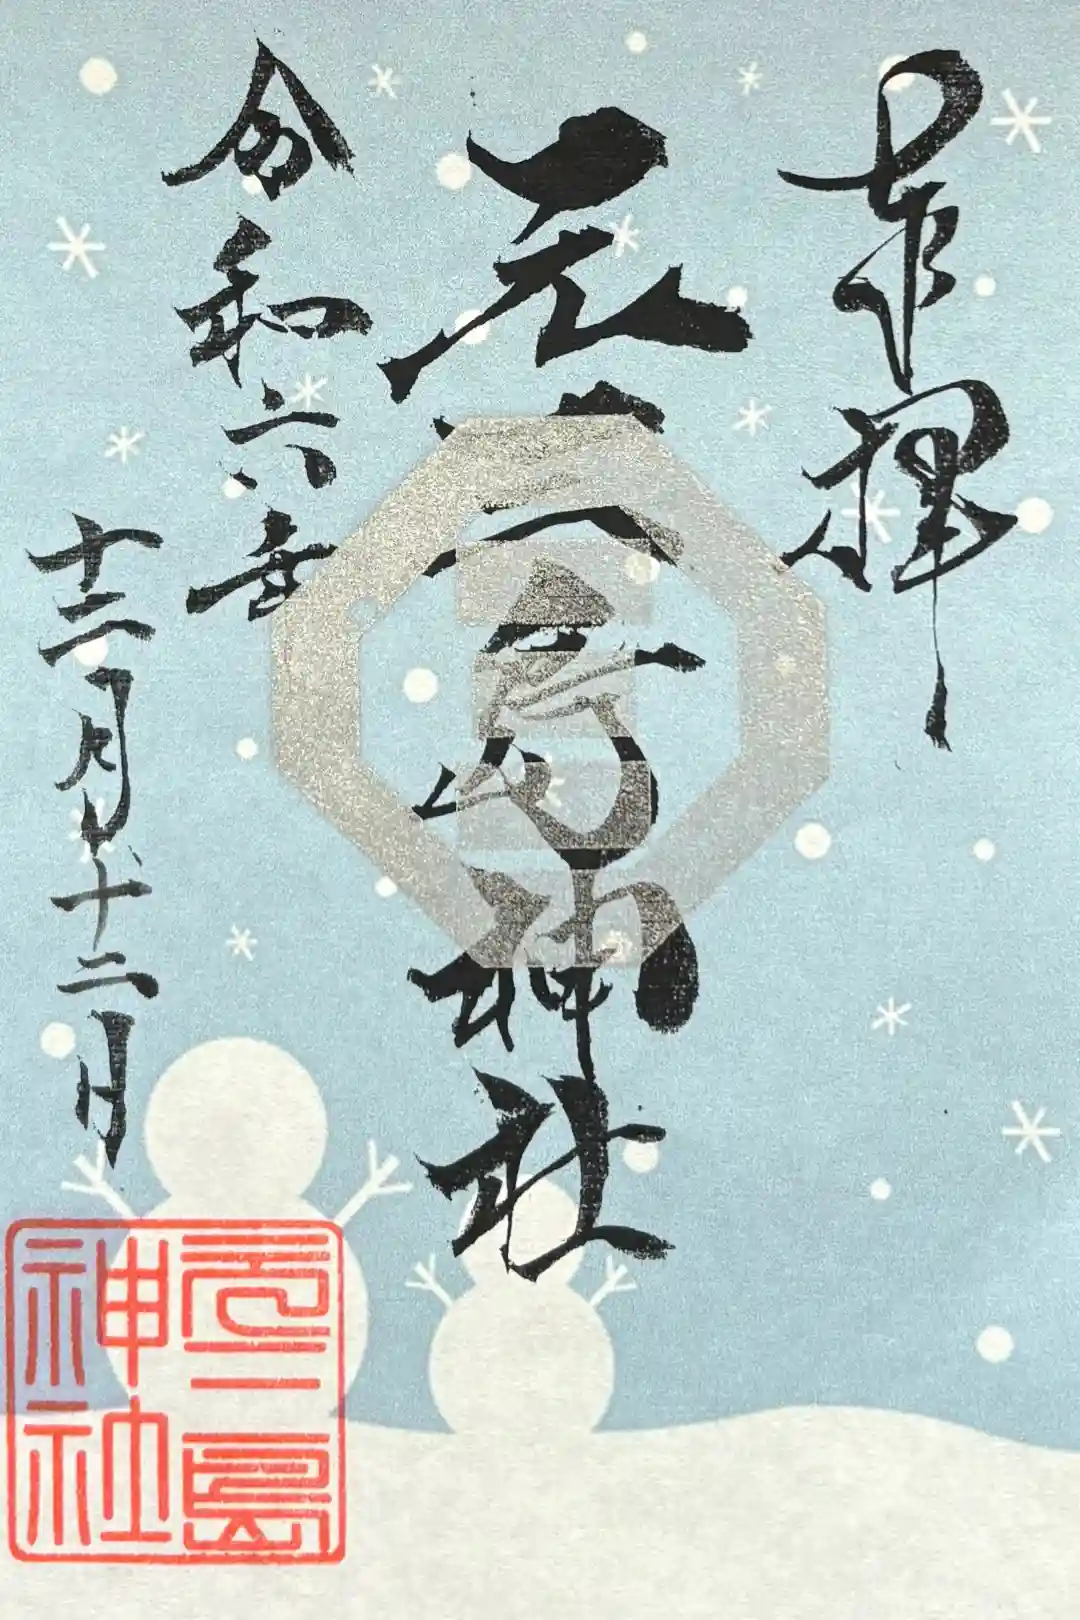 奉拝
元三島神社
令和六年
十二月二十二日
元三島
神社